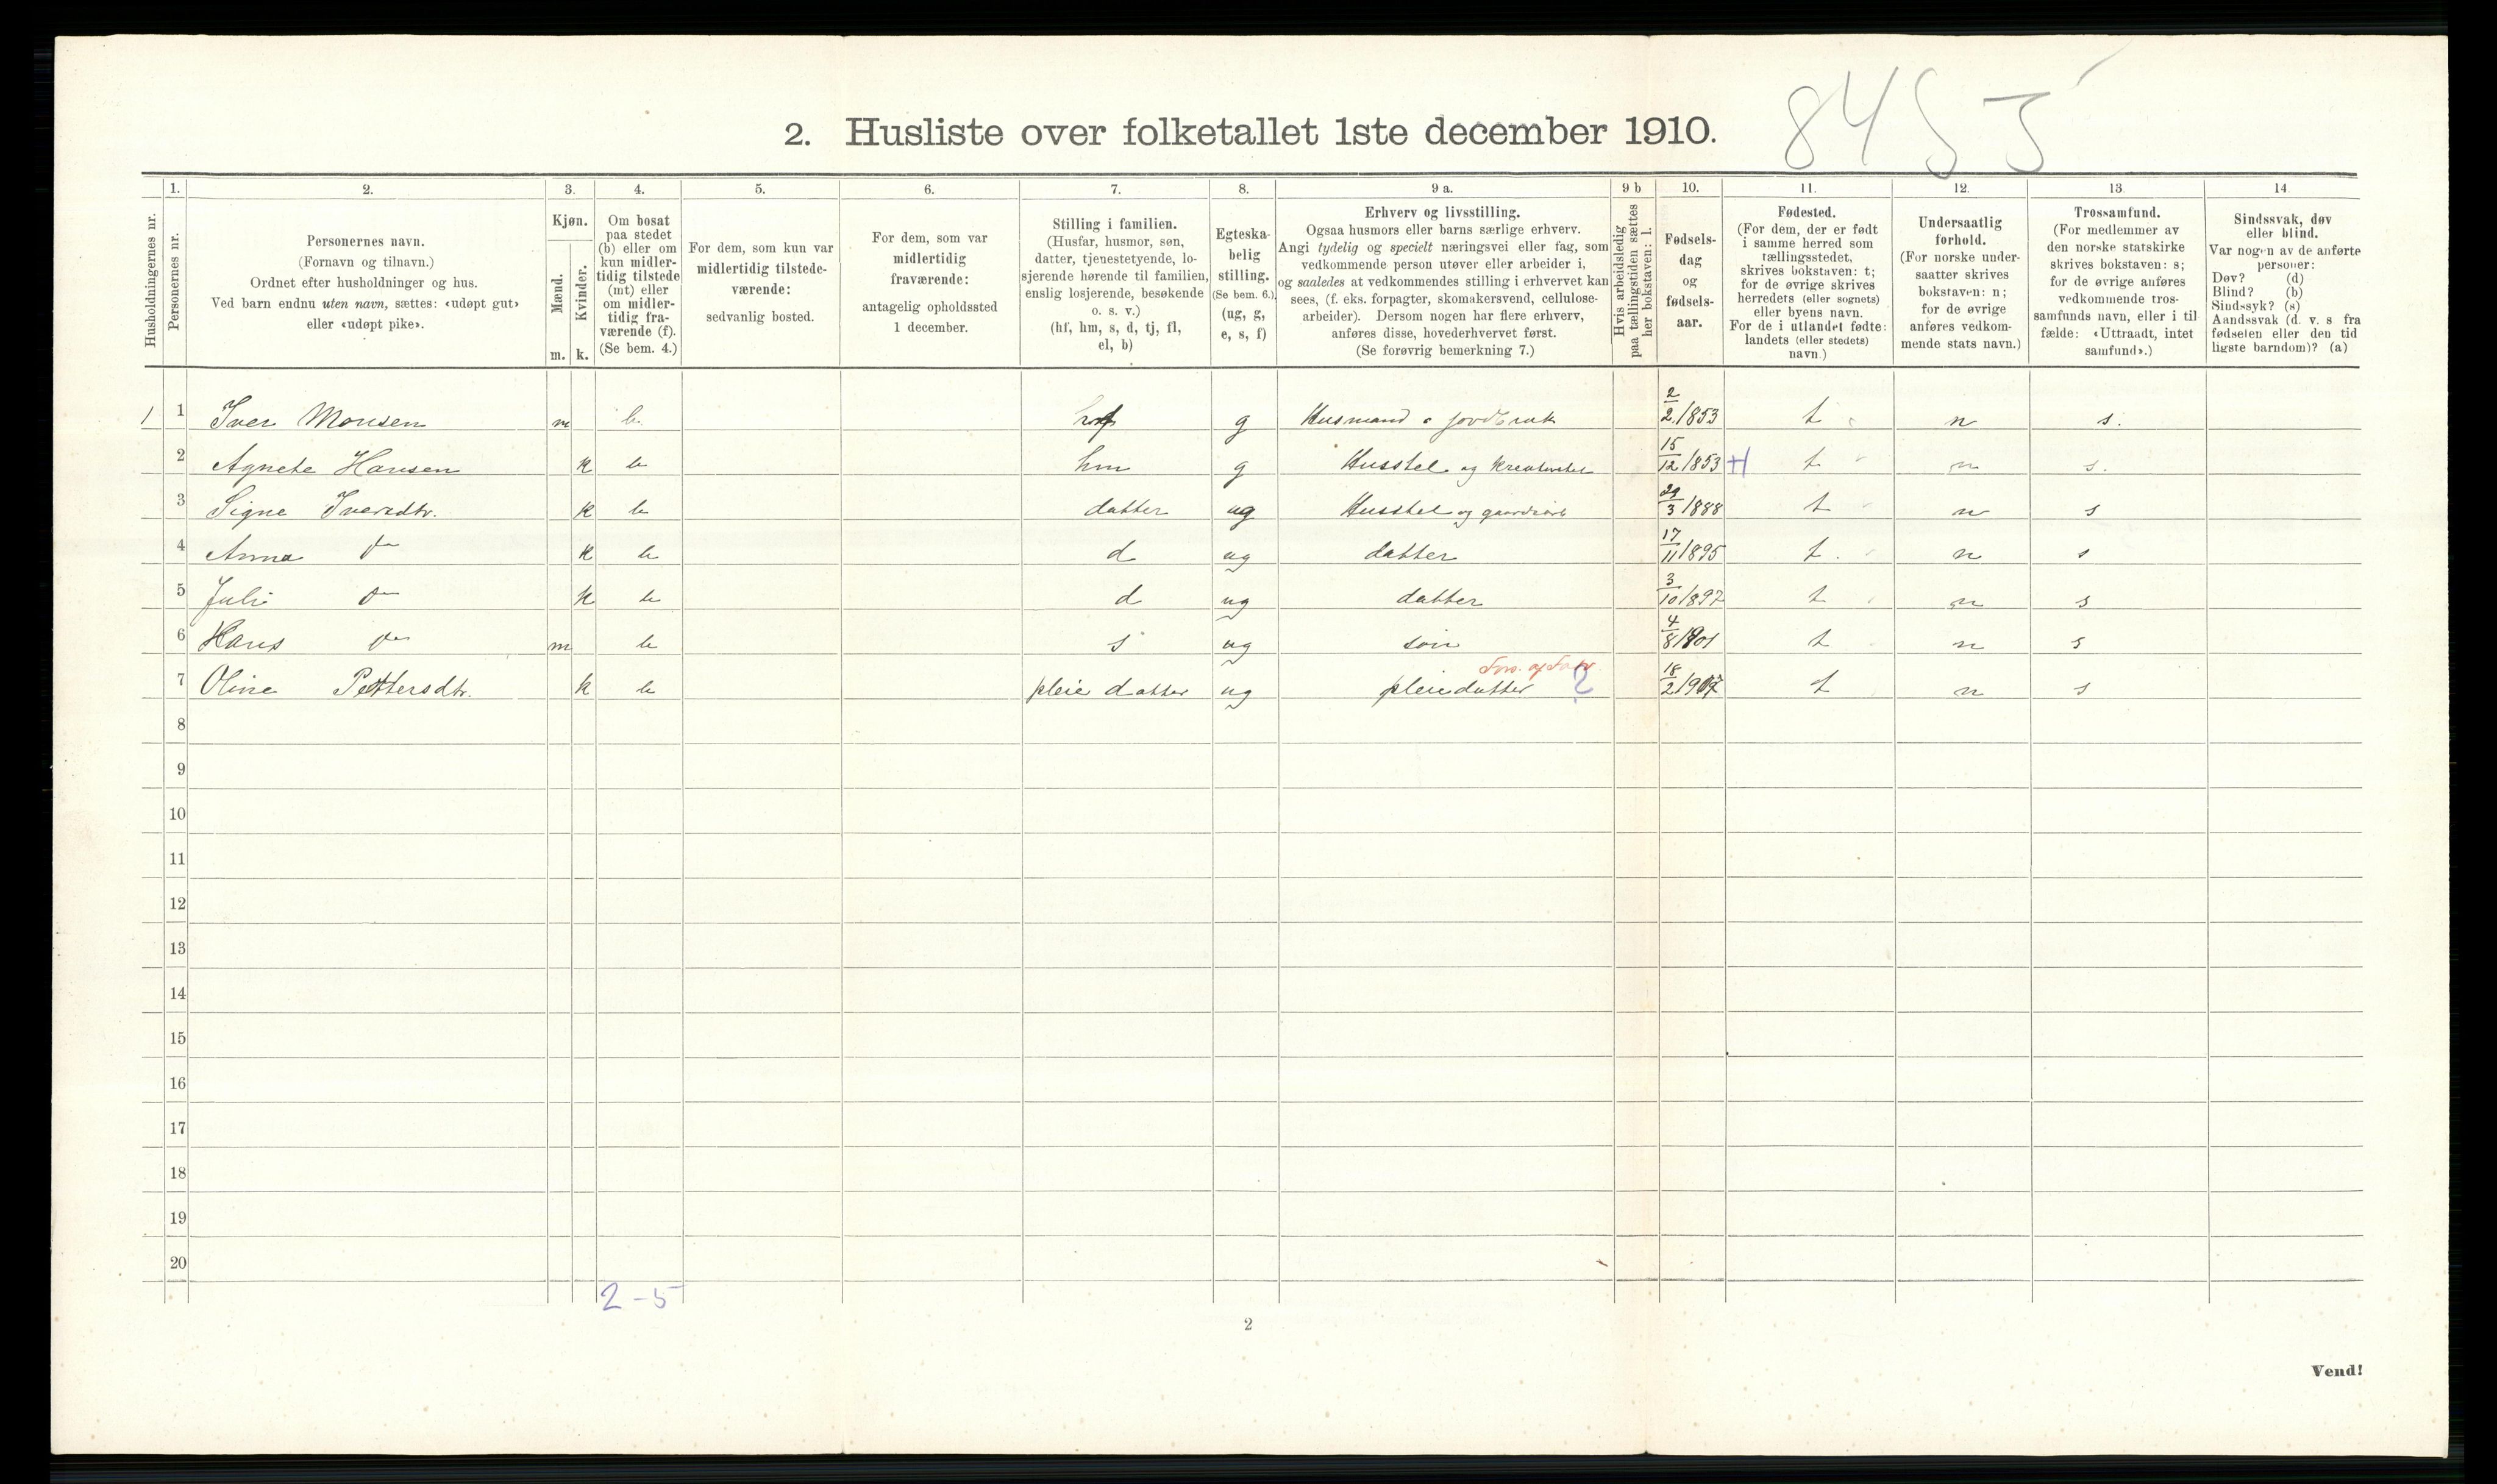 8455
2. Husliste over folketallet 1ste december 1910.
Husholdningernes nr.
1.
Personernes nr.
2.
Personernes navn.
(Fornavn og tilnavn.)
Ordnet efter husholdninger og hus.
Ved barn endnu uten navn, sættes: «udøpt gut»
eller «udøpt pike».
3.
Kjøn.
Mænd.
Kvinder.
m. k.
4.
Om bosat
paa stedet
(b) eller om
kun midler-
tidig tilstede
(mt) eller
om midler-
tidig fra-
værende (f).
(Se bem. 4.)
5.
For dem, som kun var
midlertidig tilstede-
værende:
sedvanlig bosted.
6.
For dem, som var
midlertidig
fraværende:
antagelig opholdssted
1 december.
7.
Stilling i familien.
(Husfar, husmor, søn,
datter, tjenestetyende, lo-
sjerende hørende til familien,
enslig losjerende, besøkende
o. s. v.)
(hf, hm, s, d, tj, fl,
el, b)
8.
Egteska-
belig
stilling.
(Se bem. 6.)
(ug, g,
e, s, f)
9 a.
Erhverv og livsstilling.
Ogsaa husmors eller barns særlige erhverv.
Angi tydelig og specielt næringsvei eller fag, som
vedkommende person utøver eller arbeider i,
og saaledes at vedkommendes stilling i erhvervet kan
sees, (f. eks. forpagter, skomakersvend, cellulose-
arbeider). Dersom nogen har flere erhverv,
anføres disse, hovederhvervet først.
(Se forøvrig bemerkning 7.)
9 b
Hvis arbeidsledig
paa tællingstiden sættes
her bokstaven: l.
10.
Fødsels-
dag
og
fødsels-
aar.
11.
Fødested.
(For dem, der er født
i samme herred som
tællingsstedet,
skrives bokstaven: t;
for de øvrige skrives
herredets (eller sognets)
eller byens navn.
For de i utlandet fødte:
landets (eller stedets)
navn.)
12.
Undersaatlig
forhold.
(For norske under-
saatter skrives
bokstaven: n;
for de øvrige
anføres vedkom-
mende stats navn.)
13
Trossamfund.
(For medlemmer av
den norske statskirke
skrives bokstaven: s;
for de øvrige anføres
vedkommende tros-
samfunds navn, eller i til
fælde: «Uttraadt, intet
samfund».)
14
Sindssvak, døv
eller blind.
Var nogen av de anførte
personer:
Døv? (d)
Blind? (b)
Sindssyk? (s)
Aandssvak (d. v. s fra
fødselen eller den tid
ligste barndom)? (a)
1 1 Iver Monsen m b hf g Husmand jordbruk 2/2 1853 t n s.
2 Agnete Hansen k b hm g Husstel og kreaturstel 15/12 1853 t n s.
3 Signe Iversdtr. k b datter ug Husstel og gaardsarb 29/3 1888 t n s
4 Anna do k b d ug datter 17/11 1895 t. n s
5 Juli do k b d ug datter 3/10 1897 t n s
6 Hans do m b s ug søn 4/8 1901 t n s
7 Oline Pettersdtr. k b pleie datter ug pleiedatter ? 18/2 1907 t n s
8
9
10
11
12
13
14
15
16
17
18
19
20
2 - 5
2
Vend!